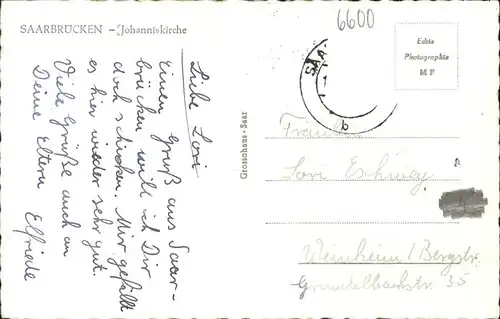 SAARBRÜCKEN – Johanniskirche
6600
Echte
Photographie
MP
Liebe Lori
Einen Gruß aus Saar-
brücken will ich Dir
doch schicken. Mir gefällt
es hier wieder sehr gut.
Viele Grüße auch an
Deine Eltern Elfriede
Grosshaus-Saar
SAA
b
Fräulein
Lori Eschwey
Weinheim / Bergstr.
Grundelbachstr. 35